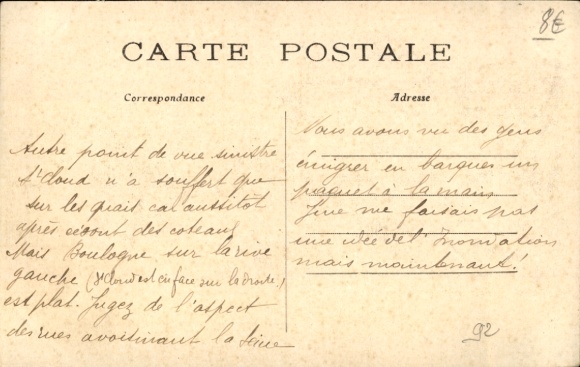 8€
CARTE POSTALE
Correspondance
Adresse
Autre point de vue sinistre
St Cloud n'a souffert que
sur les quais car aussitôt
après ce sont des coteaux
Mais Boulogne sur la rive
gauche (St Cloud est en face sur la droite)
est plat. Jugez de l'aspect
des rues avoisinant la Seine
Nous avons vu des gens
émigrer en barques un
paquet à la main
Je ne me faisais pas
une idée de l'Inondation
mais maintenant!
92